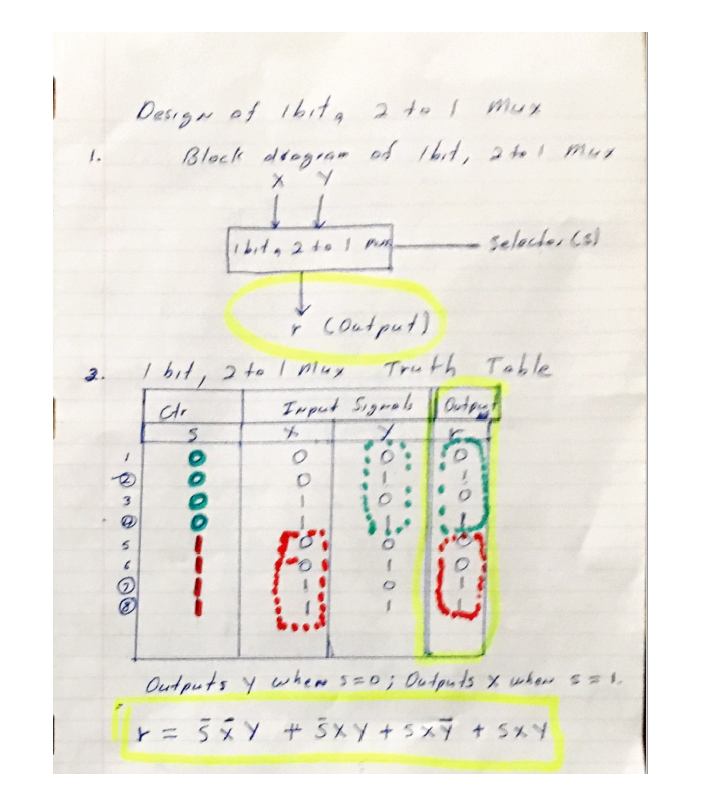 Design of 1bit, 2 to 1 Mux
1. Block diagram of 1bit, 2 to 1 Mux
X Y
1bit, 2 to 1 Mux selector (s)
r (Output)
2. 1 bit, 2 to 1 Mux Truth Table
Ctr Input Signals Output
S X Y r
1 0 0 0 0
2 0 0 1 1
3 0 1 0 0
4 0 1 1 1
5 1 0 0 0
6 1 0 1 0
7 1 1 0 1
8 1 1 1 1
Outputs Y when s=0; Outputs X when s=1.
r = S̄X̄Y + S̄XY + SXȲ + SXY